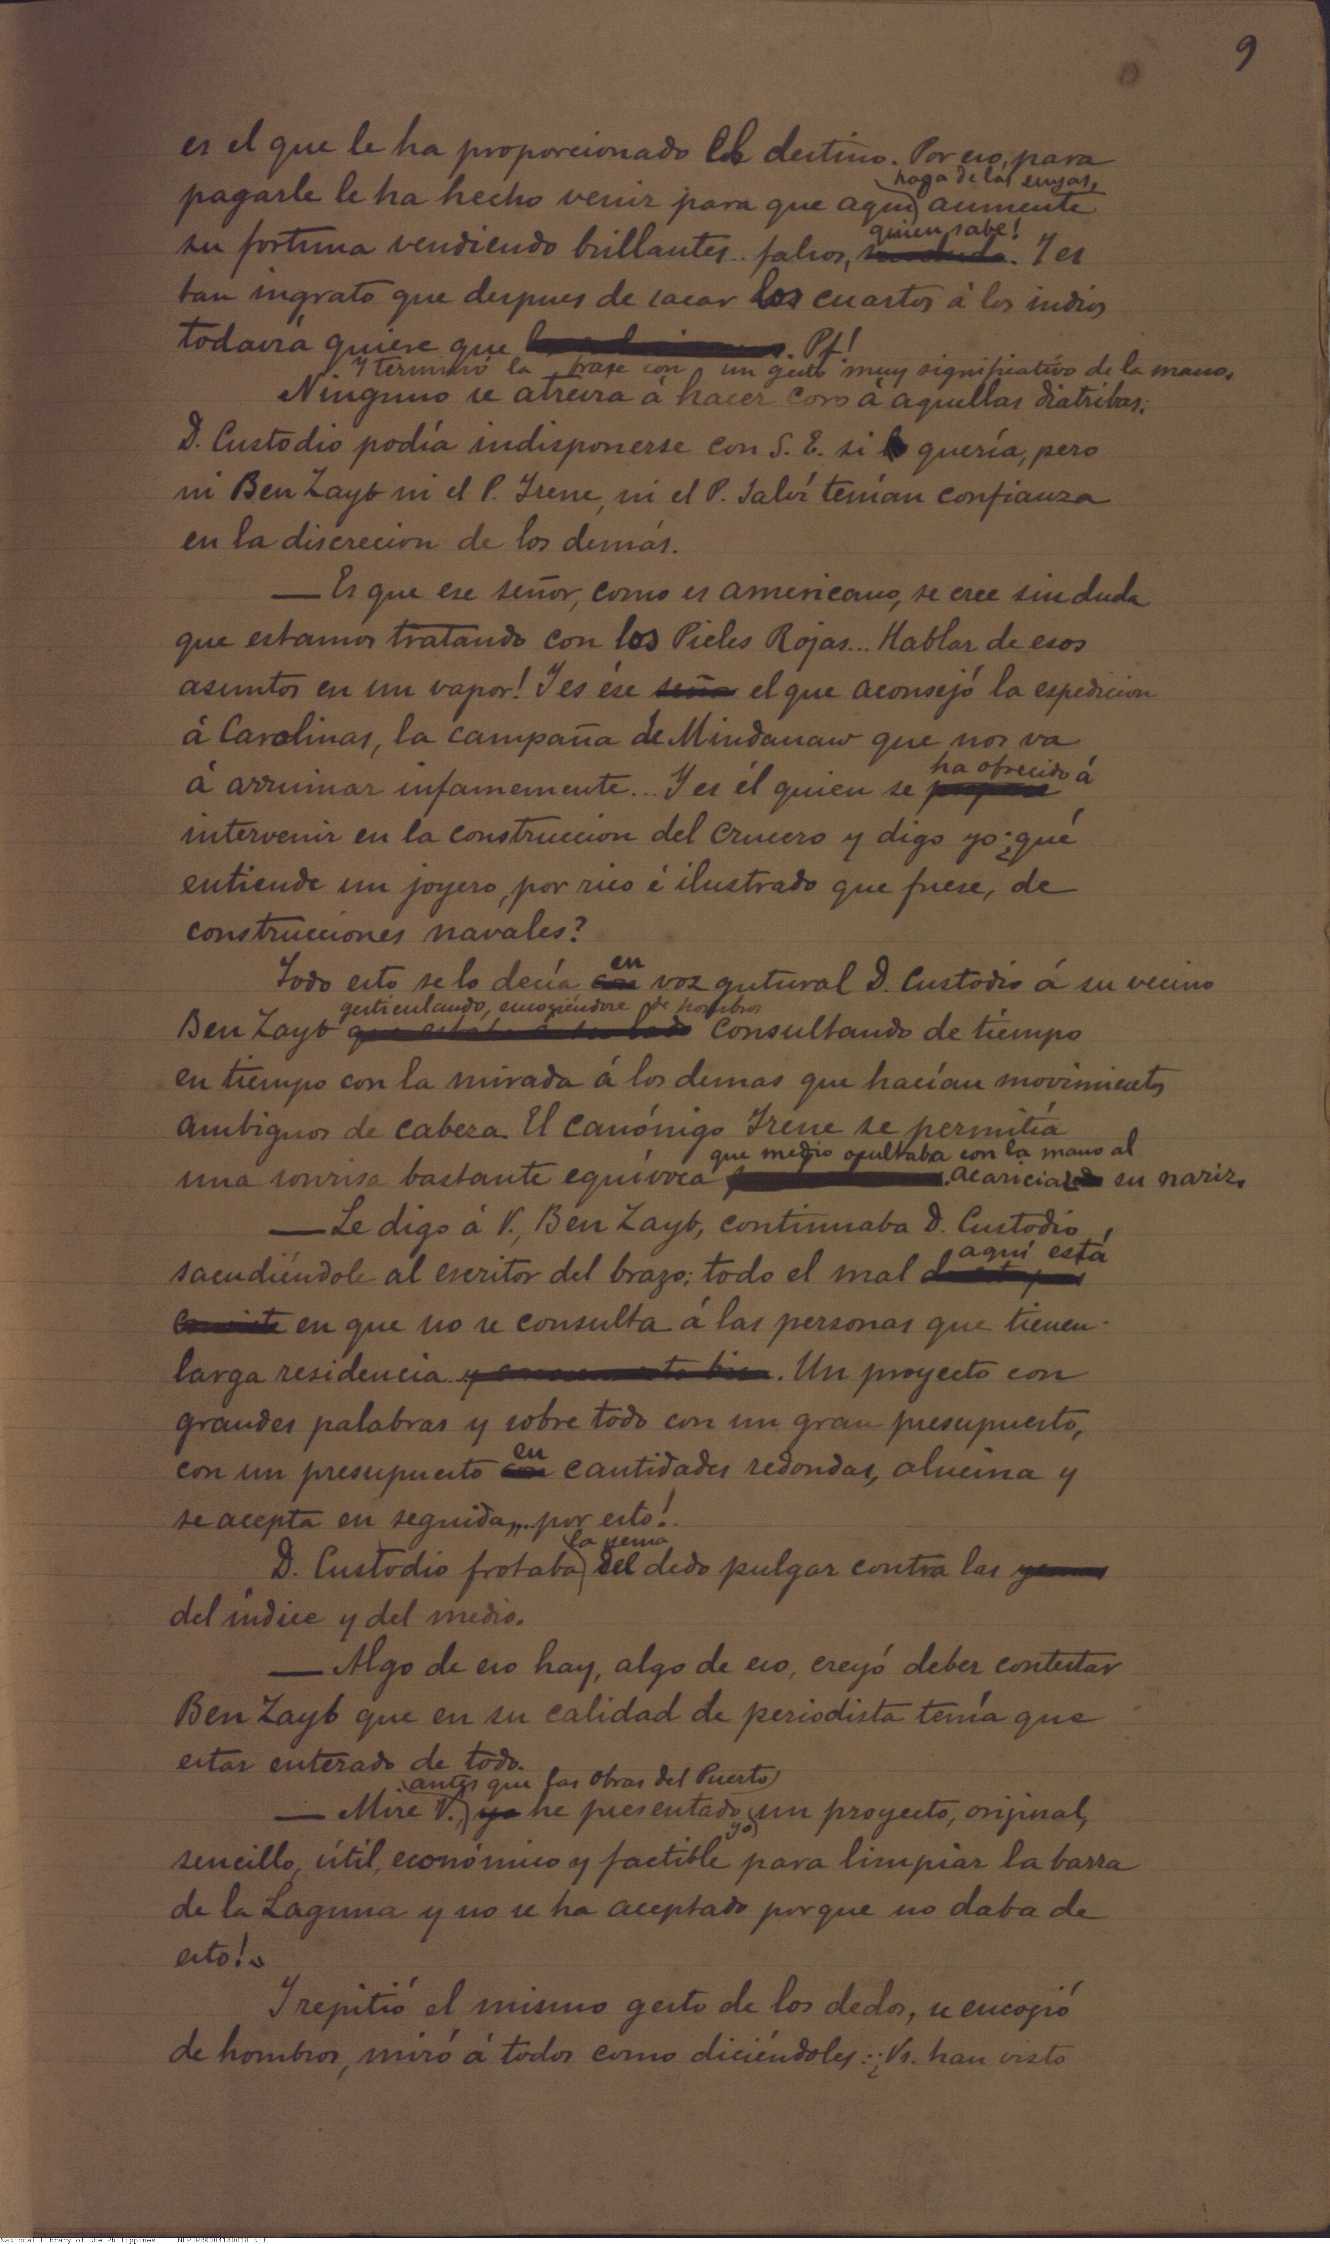 9
es el que le ha proporcionado el destino. Por eso, para
haga de las suyas,
pagarle le ha hecho venir para que aquí aumente
quien sabe!
su fortuna vendiendo brillantes.. falsos, sin duda. Y es
tan ingrato que despues de sacar los cuartos á los indios
todavía quiere que . Pf!
Y terminó la frase con un gesto muy significativo de la mano.
Ninguno se atrevía á hacer coro á aquellas diatribas;
D. Custodio podía indisponerse con S. E. si quería, pero
ni Ben Zayb ni el P. Irene, ni el P. Salví tenían confianza
en la discrecion de los demás.
— Es que ese señor, como es americano, se cree sin duda
que estamos tratando con los Pieles Rojas... Hablar de esos
asuntos en un vapor! Y es ése seño el que aconsejó la espedicion
á Carolinas, la campaña de Mindanaw que nos va
ha ofrecido á
á arruinar infamemente... Y es él quien se propone
intervenir en la construccion del crucero y digo yo ¿qué
entiende un joyero, por rico é ilustrado que fuese, de
construcciones navales?
en
Todo esto se lo decía con voz gutural D. Custodio á su vecino
gesticulando, encogiéndose de hombros
Ben Zayb que estaba á su lado consultando de tiempo
en tiempo con la mirada á los demas que hacían movimientos
ambiguos de cabeza. El canónigo Irene se permitía
que medio ocultaba con la mano al
una sonrisa bastante equívoca . acariciar su nariz.
— Le digo á V., Ben Zayb, continuaba D. Custodio
aquí está
sacudiéndole al escritor del brazo; todo el mal
consiste en que no se consulta á las personas que tienen
larga residencia y . Un proyecto con
grandes palabras y sobre todo con un gran presupuesto,
en
con un presupuesto con cantidades redondas, alucina y
se acepta en seguida,... por esto!
la yema
D. Custodio frotaba del dedo pulgar contra las yemas
del índice y del medio.
— Algo de eso hay, algo de eso, creyó deber contestar
Ben Zayb que en su calidad de periodista tenía que
estar enterado de todo.
antes que las obras del Puerto
— Mire V. yo he presentado un proyecto, orijinal,
yo
sencillo, útil, económico y factible para limpiar la barra
de la Laguna y no se ha aceptado porque no daba de
esto!
Y repitió el mismo gesto de los dedos, se encogió
de hombros, miró á todos como diciéndoles: ¿Vs. han visto